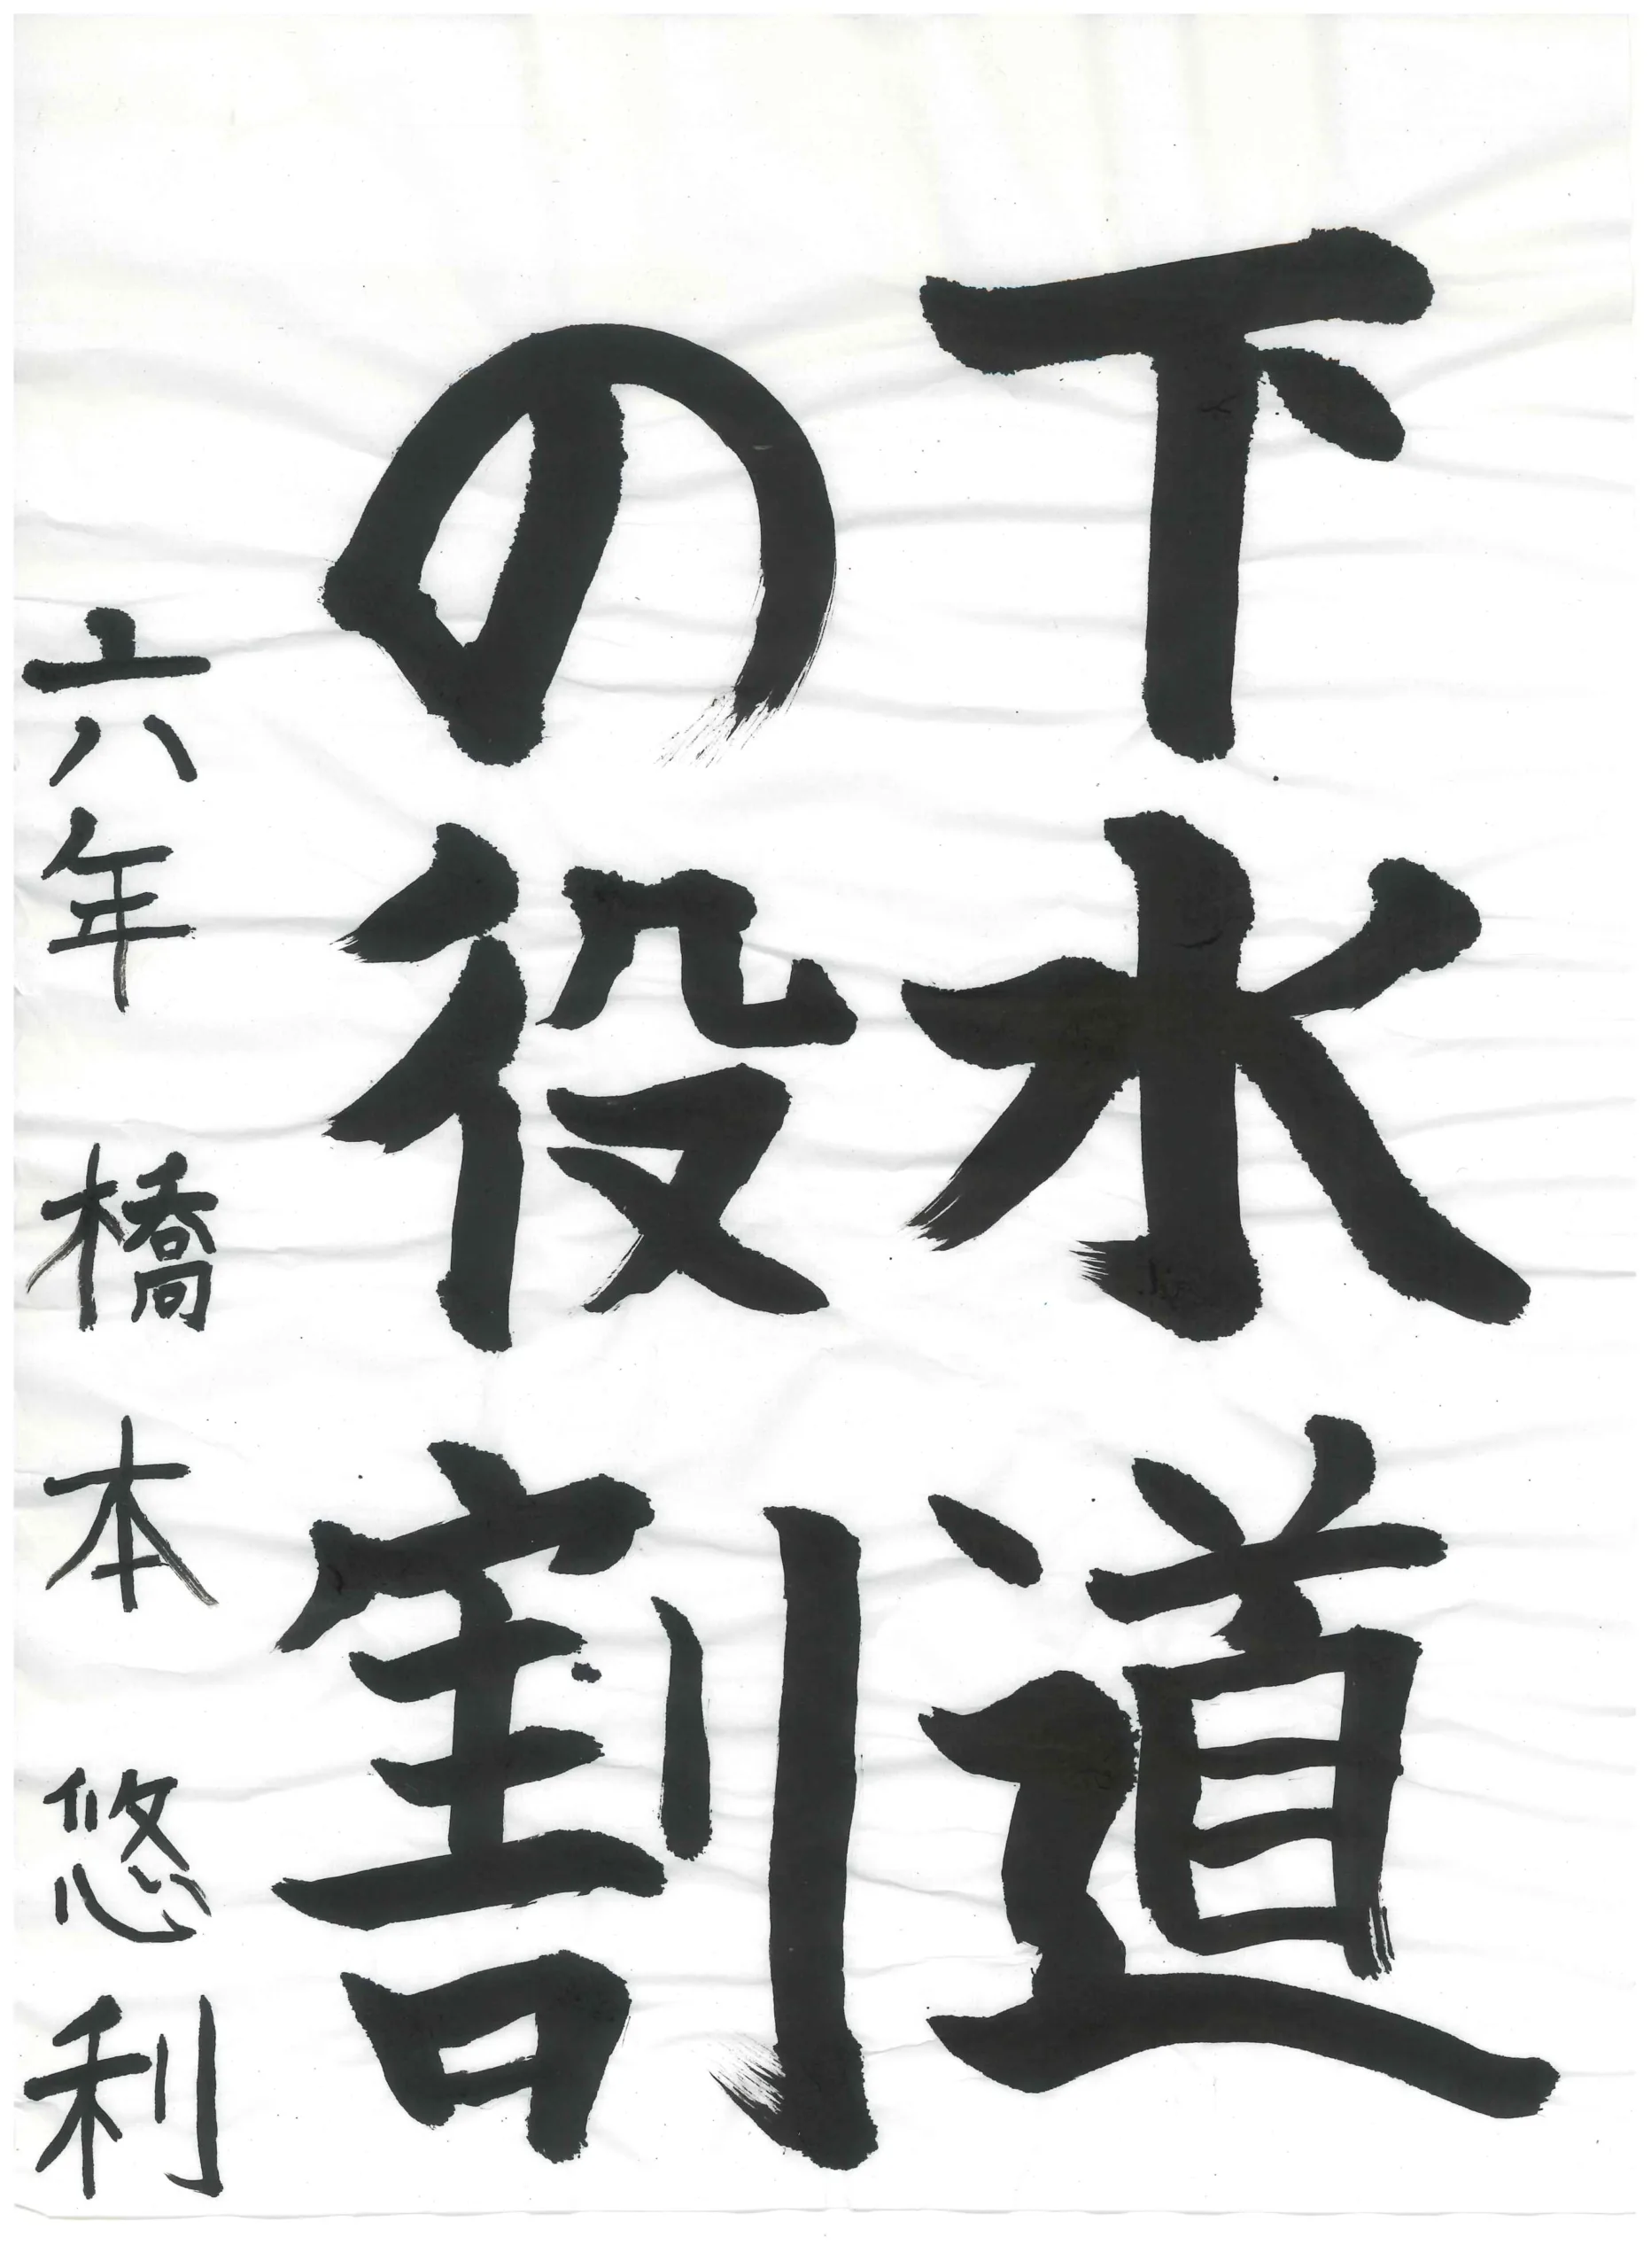 下水道
の役割
六年 橋本悠利